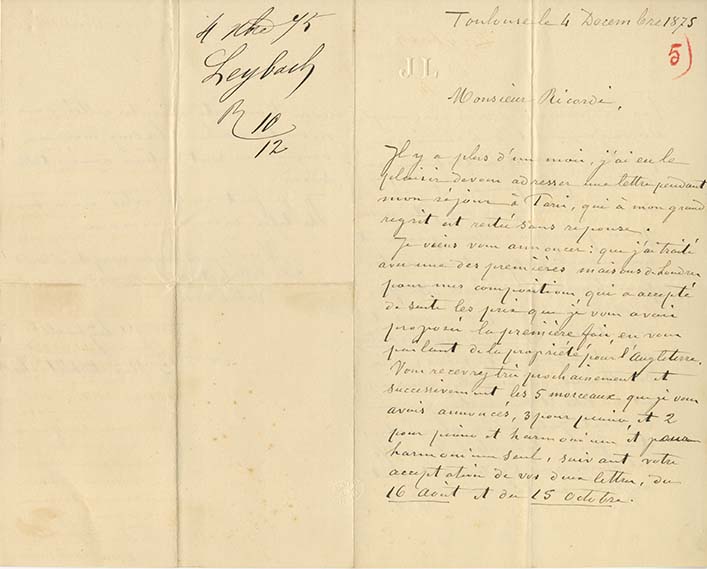 4 xbre 75
Leybach
R 10
12
Toulouse le 4 Decembre 1875
5)
J.L
Monsieur Ricordi,
Il y a plus d'un mois, j'ai eu le
plaisir de vous adresser une lettre pendant
mon séjour à Paris, qui à mon grand
regrit est restée sans reponse.
Je viens vous annoncer: que j'ai traité
avec une des premières maisons de Londres
pour mes compositions, qui a accepté
de suite les prix que je vous avais
proposés la première fois, en vous
parlant de la propriété pour l'Angleterre.
Vous recevrez très prochainement et
successivement les 5 morceaux que je vous
avais annoncés, 3 pour piano, et 2
pour piano et harmonium et pour
harmonium seul, suivant votre
acceptation de vos deux lettres, du
16 Août et du 15 Octobre.